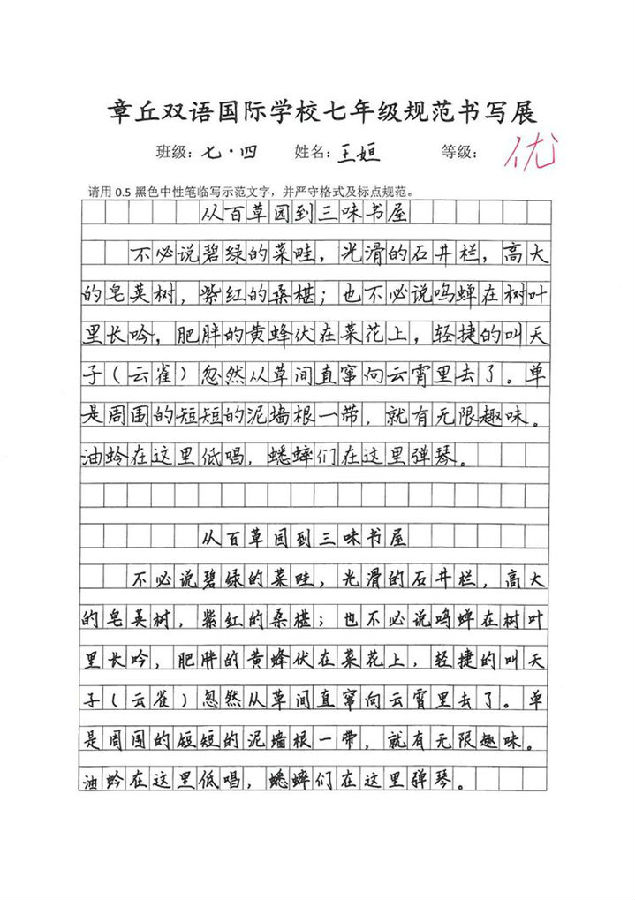 章丘双语国际学校七年级规范书写展
班级：七·四 姓名：王姮 等级：优
请用 0.5 黑色中性笔临写示范文字，并严守格式及标点规范。
从百草园到三味书屋
不必说碧绿的菜畦，光滑的石井栏，高大
的皂荚树，紫红的桑椹；也不必说鸣蝉在树叶
里长吟，肥胖的黄蜂伏在菜花上，轻捷的叫天
子（云雀）忽然从草间直窜向云霄里去了。单
是周围的短短的泥墙根一带，就有无限趣味。
油蛉在这里低唱，蟋蟀们在这里弹琴。
从百草园到三味书屋
不必说碧绿的菜畦，光滑的石井栏，高大
的皂荚树，紫红的桑椹；也不必说鸣蝉在树叶
里长吟，肥胖的黄蜂伏在菜花上，轻捷的叫天
子（云雀）忽然从草间直窜向云霄里去了。单
是周围的短短的泥墙根一带，就有无限趣味。
油蛉在这里低唱，蟋蟀们在这里弹琴。